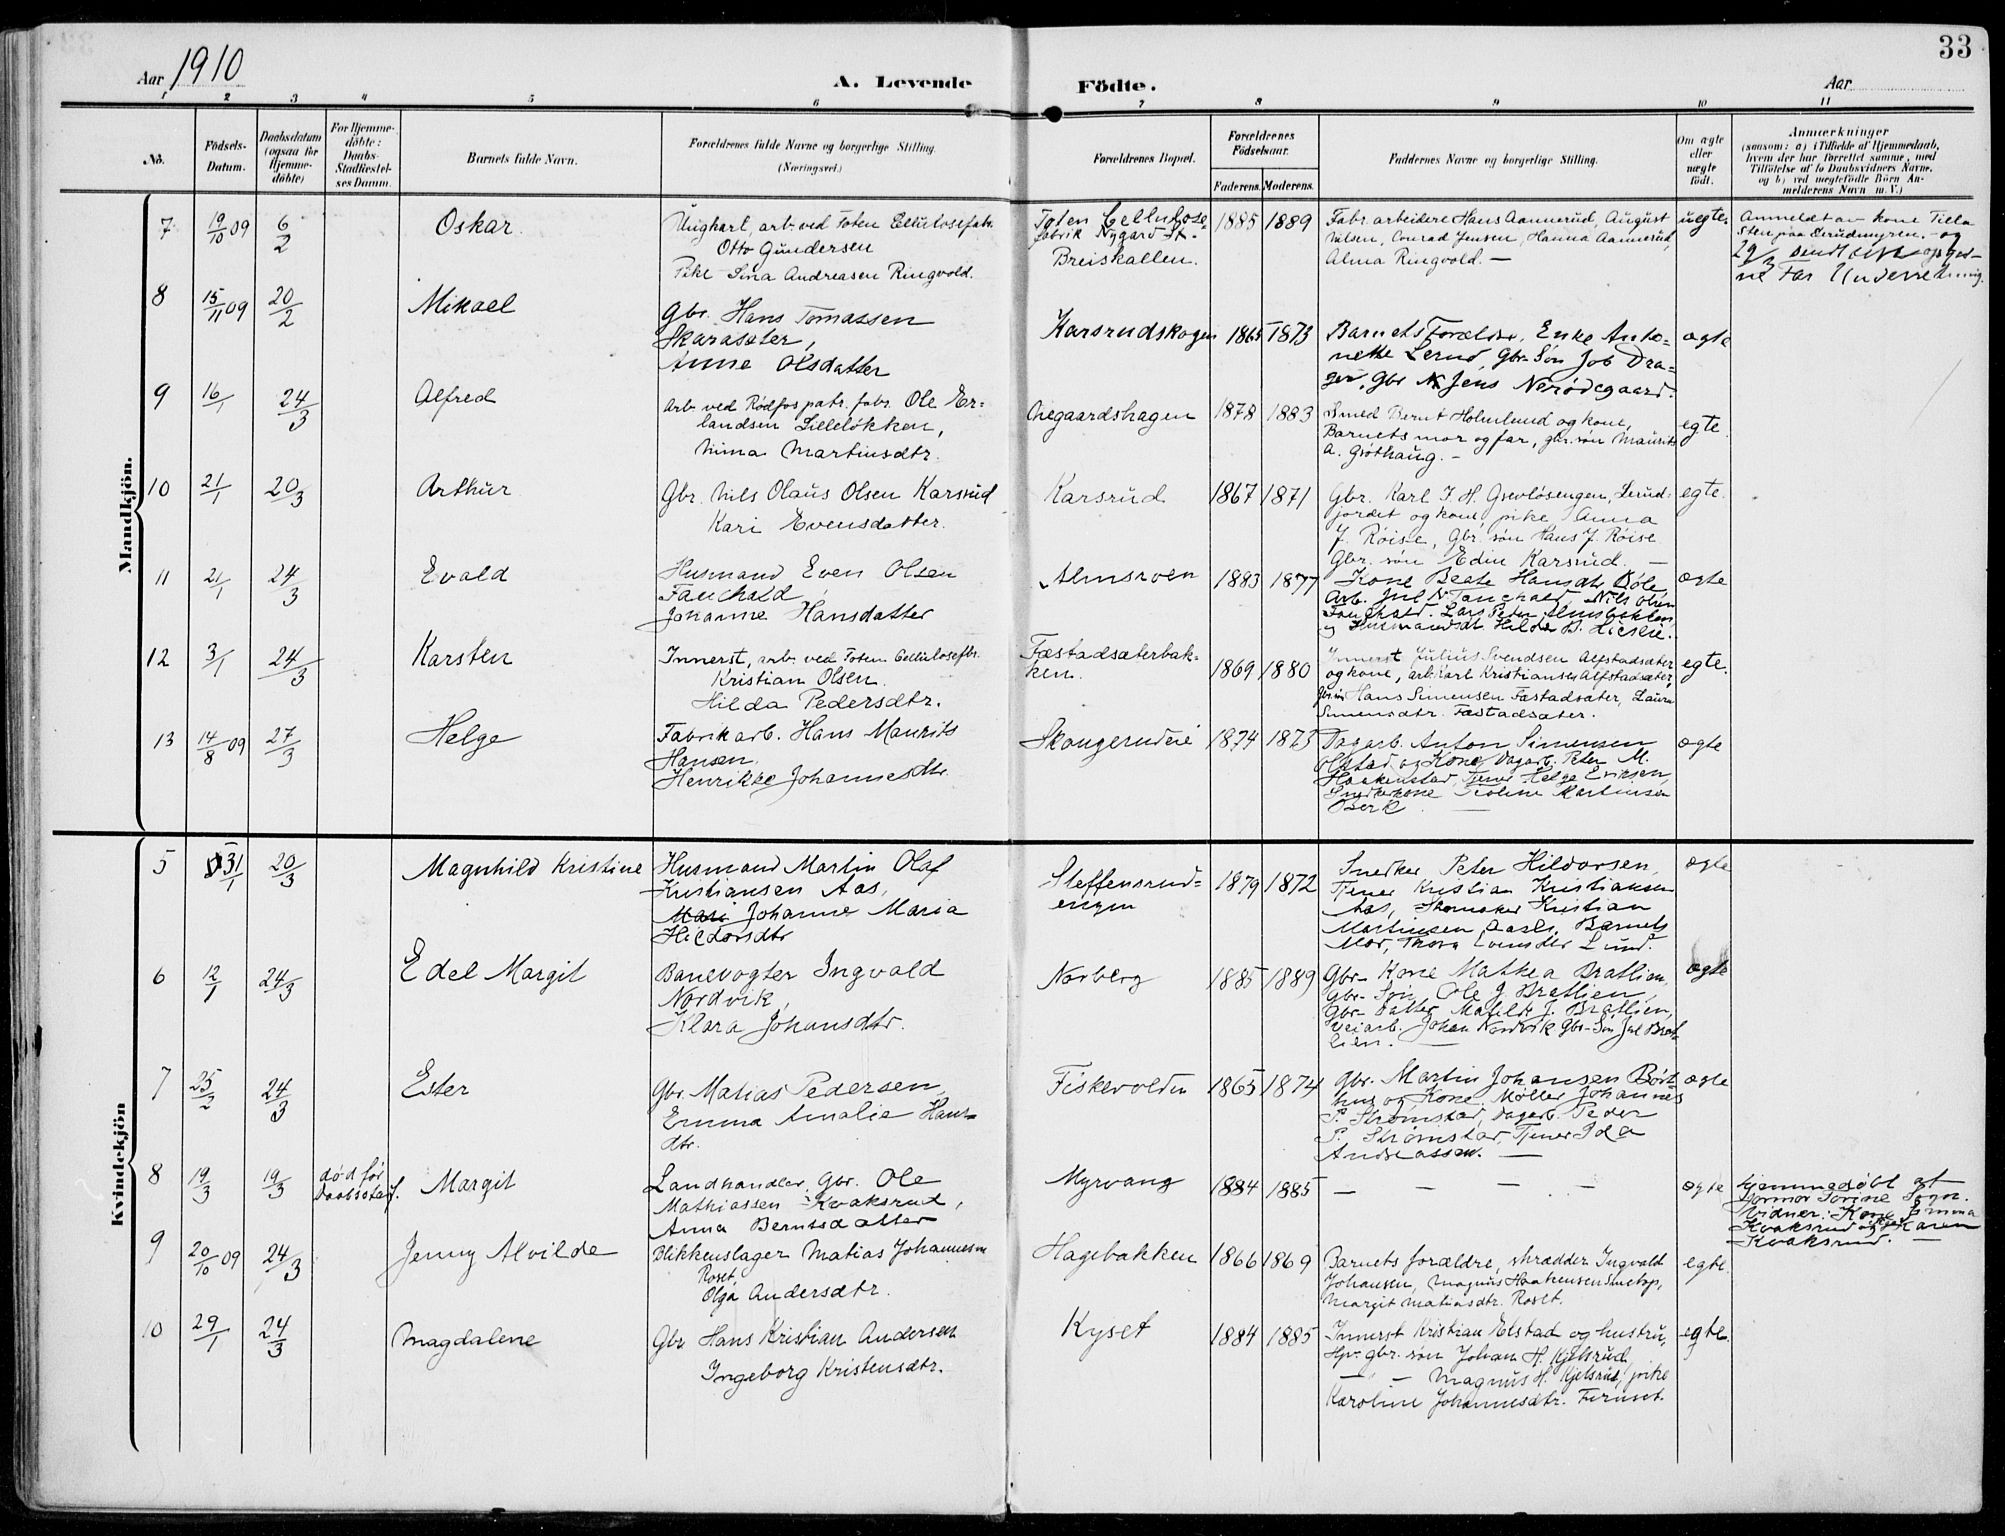 33
Aar 1910
A. Levende Födte.
Aar
1 2 3 4 5 6 7 8 9 10 11
No.
Födsels-
Datum.
Daabsdatum
(ogsaa for
Hjemme-
döbte)
For Hjemme-
döbte:
Daabs-
Stadfæstel-
ses Datum.
Barnets fulde Navn.
Forældrenes fulde Navne og borgerlige Stilling.
(Næringsvei.)
Forældrenes Bopæl.
Forældrenes
Födselsaar.
Faderens. Moderens.
Faddernes Navne og borgerlige Stilling.
Om ægte
eller
uægte
født.
Anmærkninger
(saasom: a) i Tilfælde af Hjemmedaab,
hvem der har forrettet samme, med
Tilföielse af to Daabsvidners Navne,
og b) ved uægtefödte Börn An-
melderens Navn m. V.)
Mandkjön.
7 19/10 09 6/2 Oskar.
Ungkarl, arb. ved Toten Cellulosefabr.
Otto Gundersen
Pike Lina Andreasen Ringvold.
Toten Cellulose
fabrik Nygard St.
Breiskallen.
1885 1889
Fabr. arbeidere Hans Aannerud, August
Nilsen, Conrad Jensen, Hanna Aannerud,
Alma Ringvold. —
uegte.
Anmeldt av kone Tilla
Sten paa Lerudmyren. - og
29/3 sendt
Far Underretning.
8 15/11 09 20/2 Mikael
Gbr. Hans Tomassen
Skarasæter,
Anne Olsdatter
Karsrudskogen 1865 1873
Barnets Forældre, Enke Anto-
nette Lerud, Gbr. Søn Job Dra-
ger, Gbr Jens Nerødegaard.
ægte
9 16/1 24/3 Alfred
Arb. ved Rødfos patr. fabr. Ole Er-
landsen Lilleløkken,
Nima Martinsdtr.
1878 1883
Smed Bernt Holmlund og kone,
Barnets mor og far, gbr. søn Maurits
A. Grøthaug. -
egte.
10 21/1 20/3 Arthur
Gbr. Nils Olaus Olsen Karsrud
Kari Evensdatter.
Karsrud 1867 1871
Gbr. Karl J. H. Grevløsengen, Lerud-
jordet og kone, pike Anna
J. Røise, Gbr. søn Hans J. Røise
Gbr. søn Edin Karsrud. —
egte.
11 21/1 24/3 Evald
Husmand Even Olsen
Fauchald,
Johanne Hansdatter
Almsroen 1883 1877
Kone Beate Hansdtr Bøle,
Arb. Jul. N. Fauchald, Nils Olsen
Fauchald. Lars Peder Almsbakken
og Husmandsdt Hilda B. Hieslie.
ægte
12 3/1 24/3 Karsten
Innerst, arb. ved Toten Cellulosefbr.
Kristian Olsen.
Hilda Pedersdtr.
Fæstadsæterbak-
ken.
1869 1880
Innerst Julius Svendsen Alfstadsæter
og kone, arb. Karl Kristiansen Alfstadsæter,
Hans Simensen Fæstadsæter, Laura
Simensdtr. Fæstadsæter.
egte.
13 14/8 09 27/3 Helge
Fabrikarb. Hans Maurits
Hansen.
Henrikke Johannesdtr.
Skougerudeie 1874 1875
Dagarb. Anton Simensen
Olstad og Kone, Dagarb. Peter M.
Haakenstad, Tjener Helge Eriksen,
Snedkerkone Teoline Martinsen
ægte
Kvindekjön
5 31/1 20/3 Magnhild Kristine
Husmand Martin Olaf
Kristiansen Aas,
Johanne Maria
Hildorsdtr
Steffensrud-
engen
1879 1872
Snedker Peter Hildorsen,
Tjener Kristian Kristiansen
Aas, Skomaker Kristian
Martinsen Aasli, Barnets
Mor, Thora Lund.
ægte
6 12/1 24/3 Edel Margit
Banevogter Ingvald
Nordvik,
Klara Johansdtr.
Norberg 1885 1889
Gbr- Kone Mathea Bratlien,
Gbr- Søn Ole J. Bratlien,
Gbr- Datter Matilde J. Bratlien,
Veiarb. Johan Nordvik Gbr-Søn Jul Brat-
lien. —
ægte
7 25/2 24/3 Ester
Gbr. Matias Pedersen,
Emma Amalie Hans-
dtr.
Fiskevolden 1865 1874
Gbr. Martin Johansen Børt-
hus og Kone, Møller Johannes
P. Strømstad, Dagarb. Peder
P. Strømstad, Tjener Ida
Andreassen. —
ægte
8 19/3 19/3 død før
Daabsstadf. Margit
Landhandler, Gbr. Ole
Mathiassen Kvaksrud,
Anna Berntsdatter
Myrvang 1884 1885
— — — — —
ægte
Hjemmedøbt af
Jormor Torine Sogn.
Vidner: Kone Emma
Kvaksrud og Karen
Kvaksrud. —
9 20/10 09 24/3 Jenny Alvilde
Blikkenslager Matias Johannesen
Roset,
Olga Andersdtr.
Hagebakken 1866 1869
Barnets forældre, skrædder Ingvald
Johansen, Magnus Haakensen Smetop,
Margit Matiasdtr. Roset.
egte.
10 29/1 24/3 Magdalene
Gbr. Hans Kristian Andersen
Ingeborg Kristensdtr.
Kyset 1884 1885
Innerst Kristian Elstad og hustru,
Hpr. gbr. søn Johan H. Kjelsrud
— " — Magnus H. Kjelsrud, pike
Karoline Johannesdtr. Fernset.
egte.